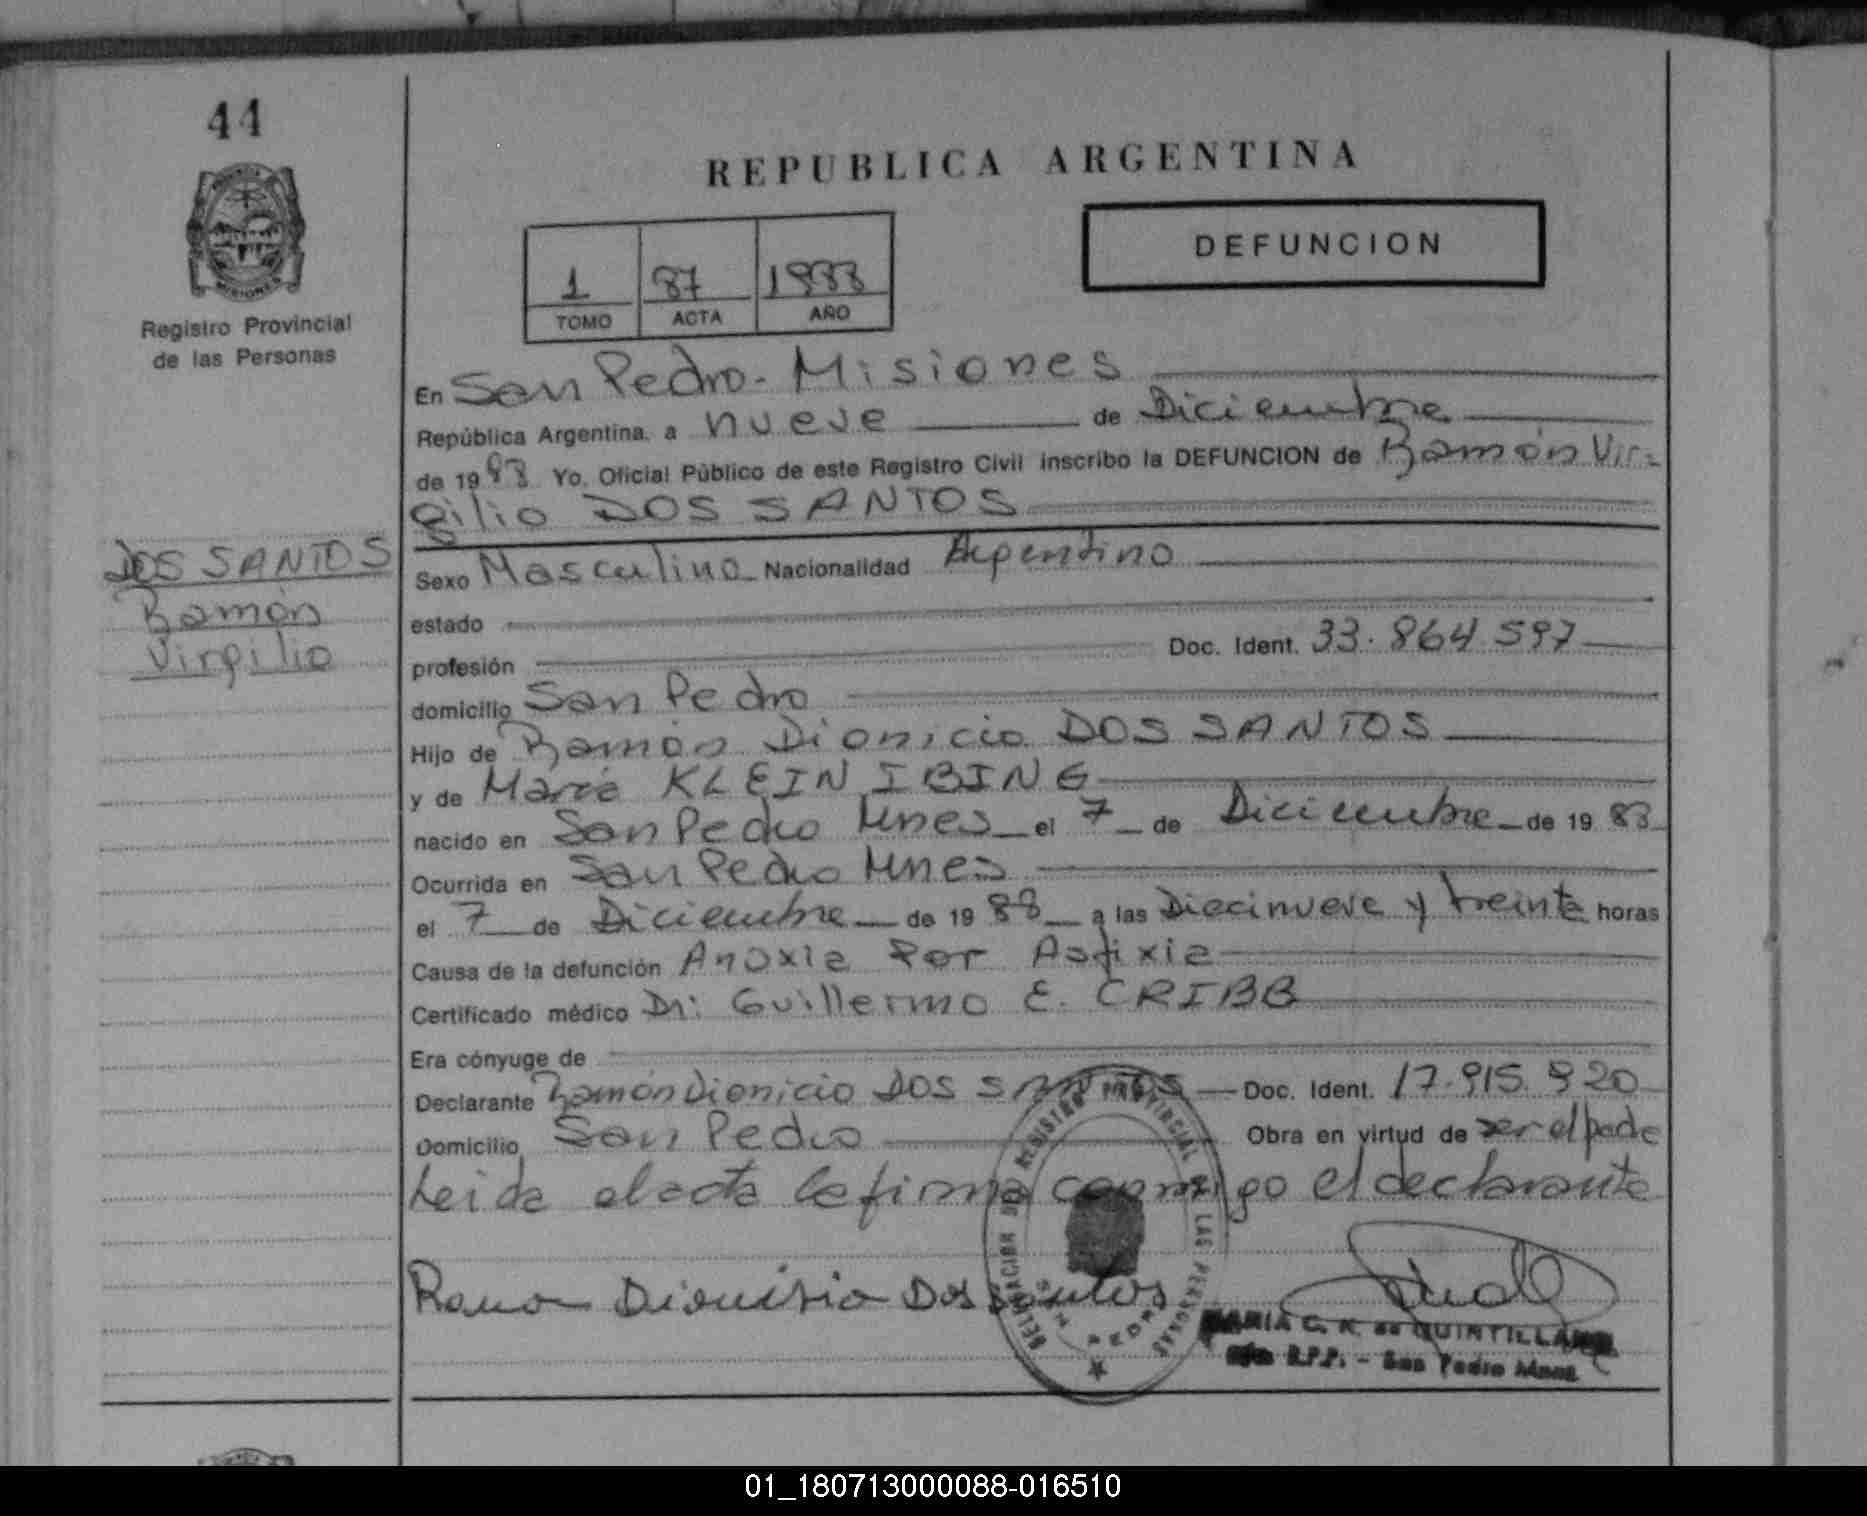 44
REPUBLICA ARGENTINA
MISIONES
Registro Provincial
de las Personas
1 87 1988
TOMO ACTA AÑO
DEFUNCION
En San Pedro - Misiones
República Argentina, a nueve de Diciembre
de 1988 Yo, Oficial Público de este Registro Civil inscribo la DEFUNCION de Ramón Vir-
gilio DOS SANTOS
DOS SANTOS
Ramón
Virgilio
Sexo Masculino Nacionalidad Argentino
estado
profesión Doc. Ident. 33.864.597
domicilio San Pedro
Hijo de Ramón Dionicio DOS SANTOS
y de María KLEIN IBING
nacido en San Pedro Mnes el 7 de Diciembre de 1988
Ocurrida en San Pedro Mnes
el 7 de Diciembre de 1988 a las Diecinueve y treinta horas
Causa de la defunción Anoxia Por Asfixia
Certificado médico Dr: Guillermo E. CRIBB
Era cónyuge de
Declarante Ramón Dionicio DOS SANTOS Doc. Ident. 17.915.920
Domicilio San Pedro Obra en virtud de ser el padre
Leida el acta la firma conmigo el declarante
Ramon Dionisio Dos Santos
DELEGACION DEL REGISTRO PROVINCIAL DE LAS PERSONAS
SAN PEDRO
MARIA C. K. de QUINTILLAN
R.P.P. - San Pedro Mnes.
01_180713000088-016510